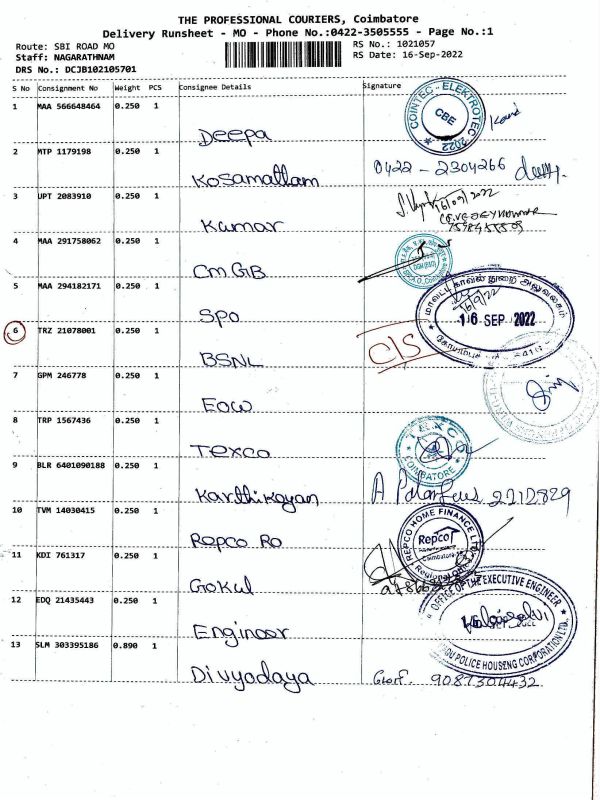 THE PROFESSIONAL COURIERS, Coimbatore
Delivery Runsheet - MO - Phone No.:0422-3505555 - Page No.:1
Route: SBI ROAD MO
RS No.: 1021057
Staff: NAGARATHNAM
RS Date: 16-Sep-2022
DRS No.: DCJB102105701
S No Consignment No Weight PCS Consignee Details Signature
1 MAA 566648464 0.250 1
COINTEC - ELEKTROTEC 2022
CBE
Deepa
2 MTP 1179198 0.250 1
Kosamattam 0422 - 2304266
3 UPT 2083910 0.250 1
16/09/2022
Kumar
4 MAA 291758062 0.250 1
CMGB
5 MAA 294182171 0.250 1
மாவட்ட காவல் துறை அலுவலகம்
16/9/22
16 SEP 2022
SPO
6 TRZ 21078001 0.250 1
C/S
BSNL
7 GPM 246778 0.250 1
EOW
8 TRP 1567436 0.250 1
TEXCO
COIMBATORE
Texco
9 BLR 6401090188 0.250 1
Karthikayan 2212829
10 TVM 14030415 0.250 1
REPCO HOME FINANCE LTD
Repco
Coimbatore
Repco Ro
11 KDI 761317 0.250 1
Gokul
12 EDQ 21435443 0.250 1
OFFICE OF THE EXECUTIVE ENGINEER
POLICE HOUSING CORPORATION LTD.
Engineer
13 SLM 303395186 0.890 1
Divyodaya 9087304432